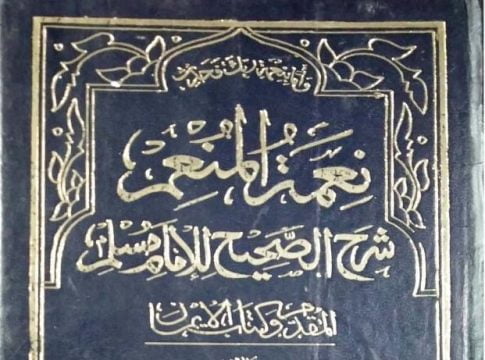 وأما بنعمة ربك فحدث
نعمة المنعم
شرح الصحيح للإمام مسلم
المقدمة وكتاب الإيمان